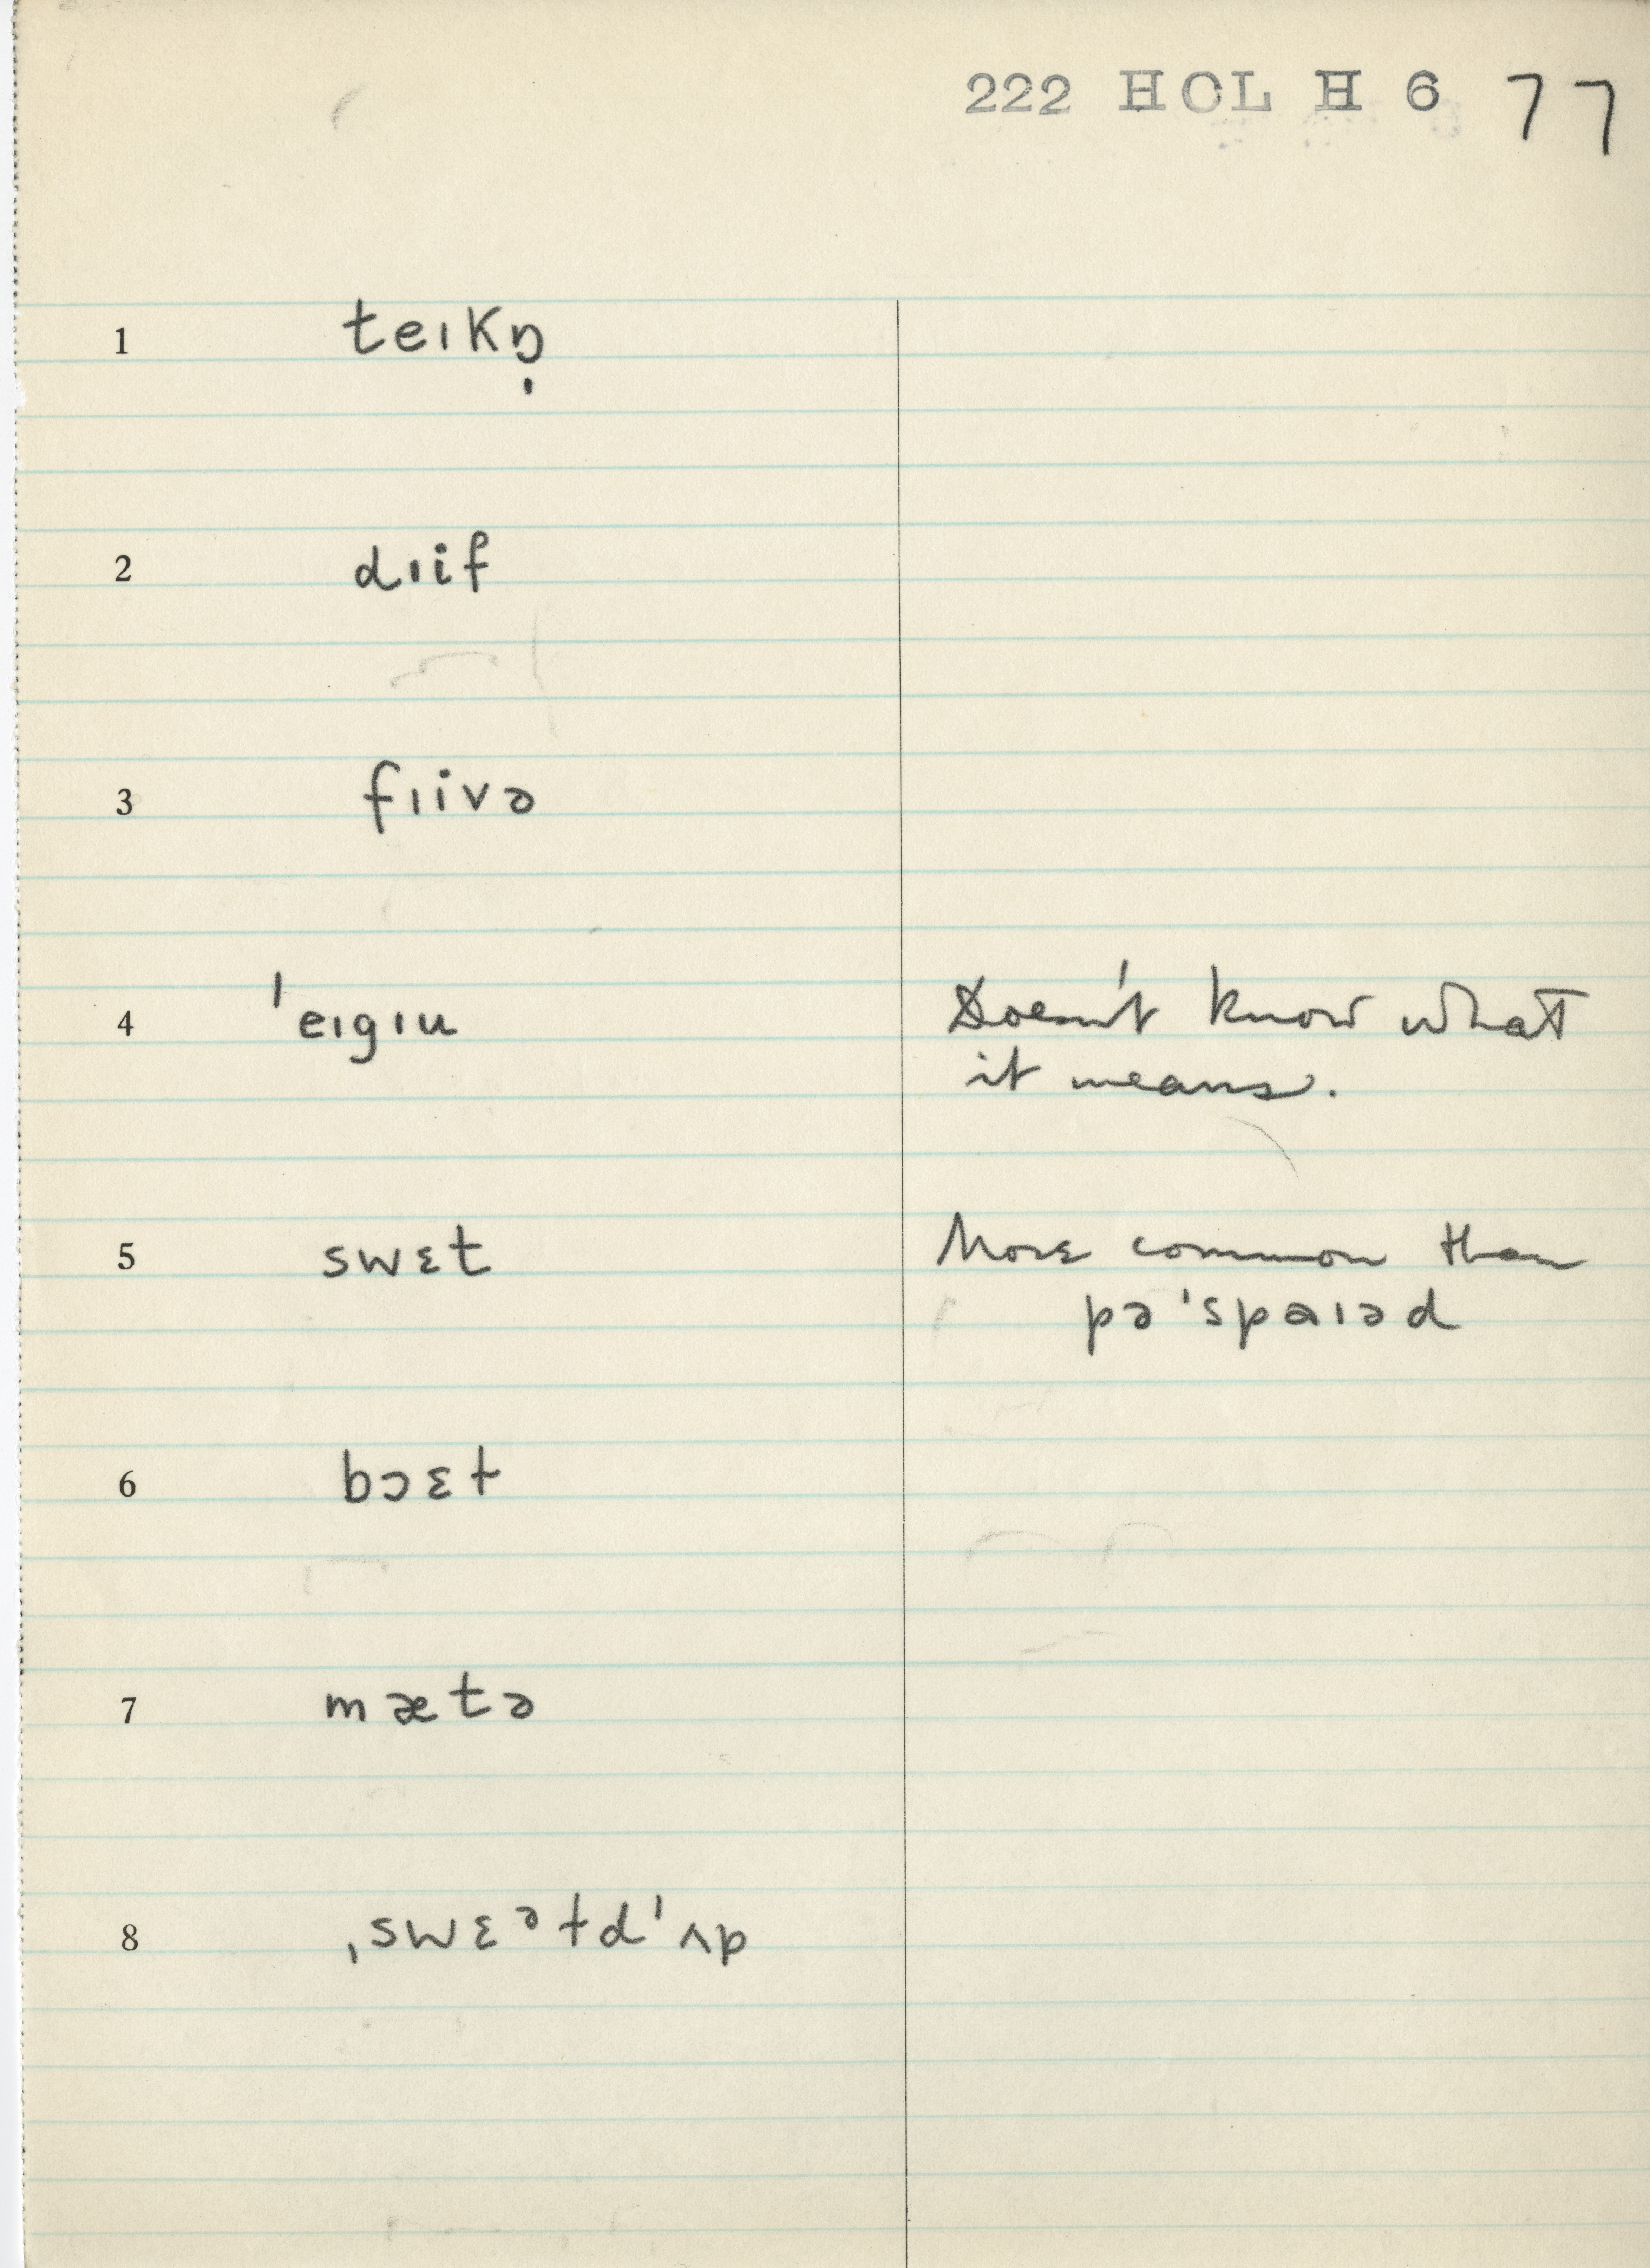 222 HOL H 6 77
1 teɪkŋ̣
2 dɪif
3 fɪivə
4 ˈeɪgɪu Doesn't know what
it means.
5 swɛt More common than
pəˈspaɪəd
6 bɔɛt
7 mætə
8 ˌswɛᵊtdˈʌp